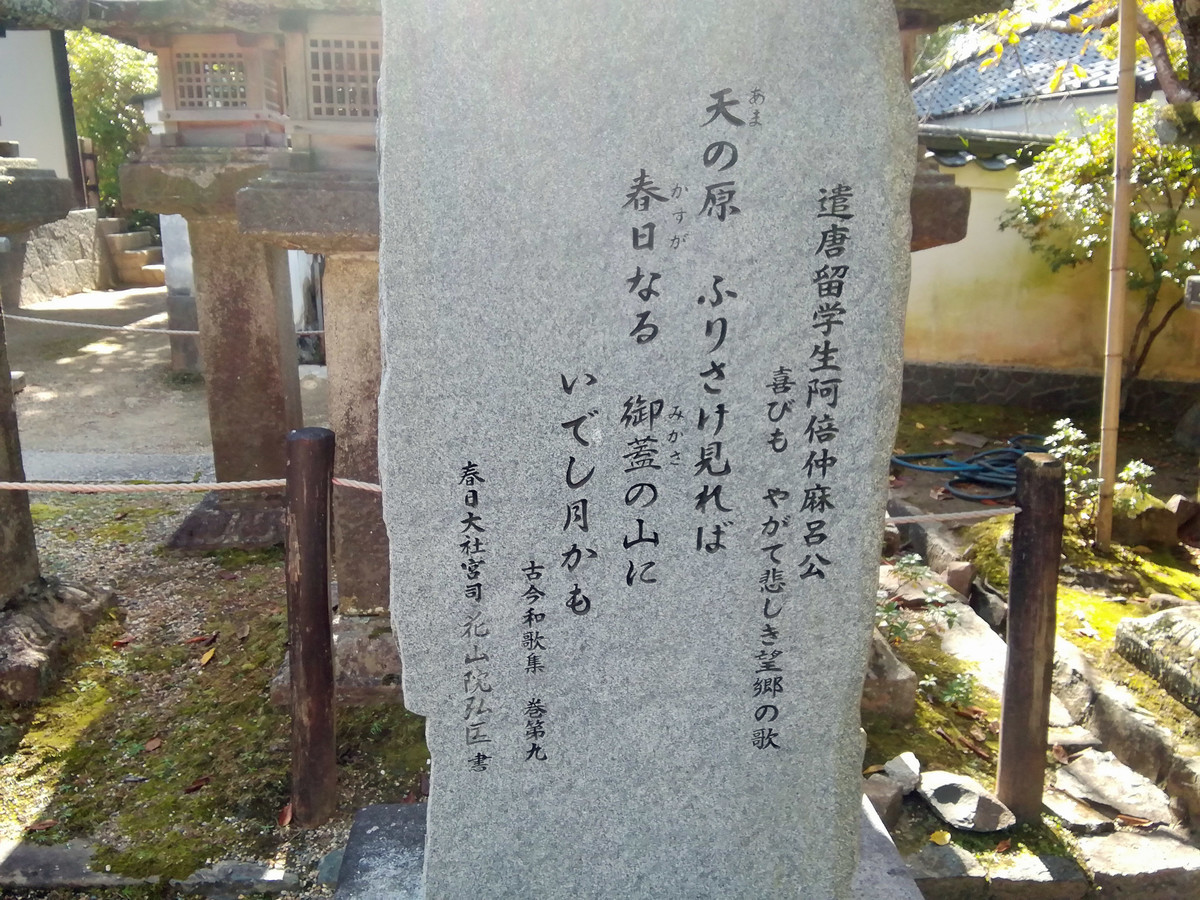 遣唐留学生阿倍仲麻呂公
喜びも　やがて悲しき望郷の歌
天の原　ふりさけ見れば
あま
春日なる　御蓋の山に
かすが　みかさ
いでし月かも
古今和歌集　巻第九
春日大社宮司　花山院弘匡　書